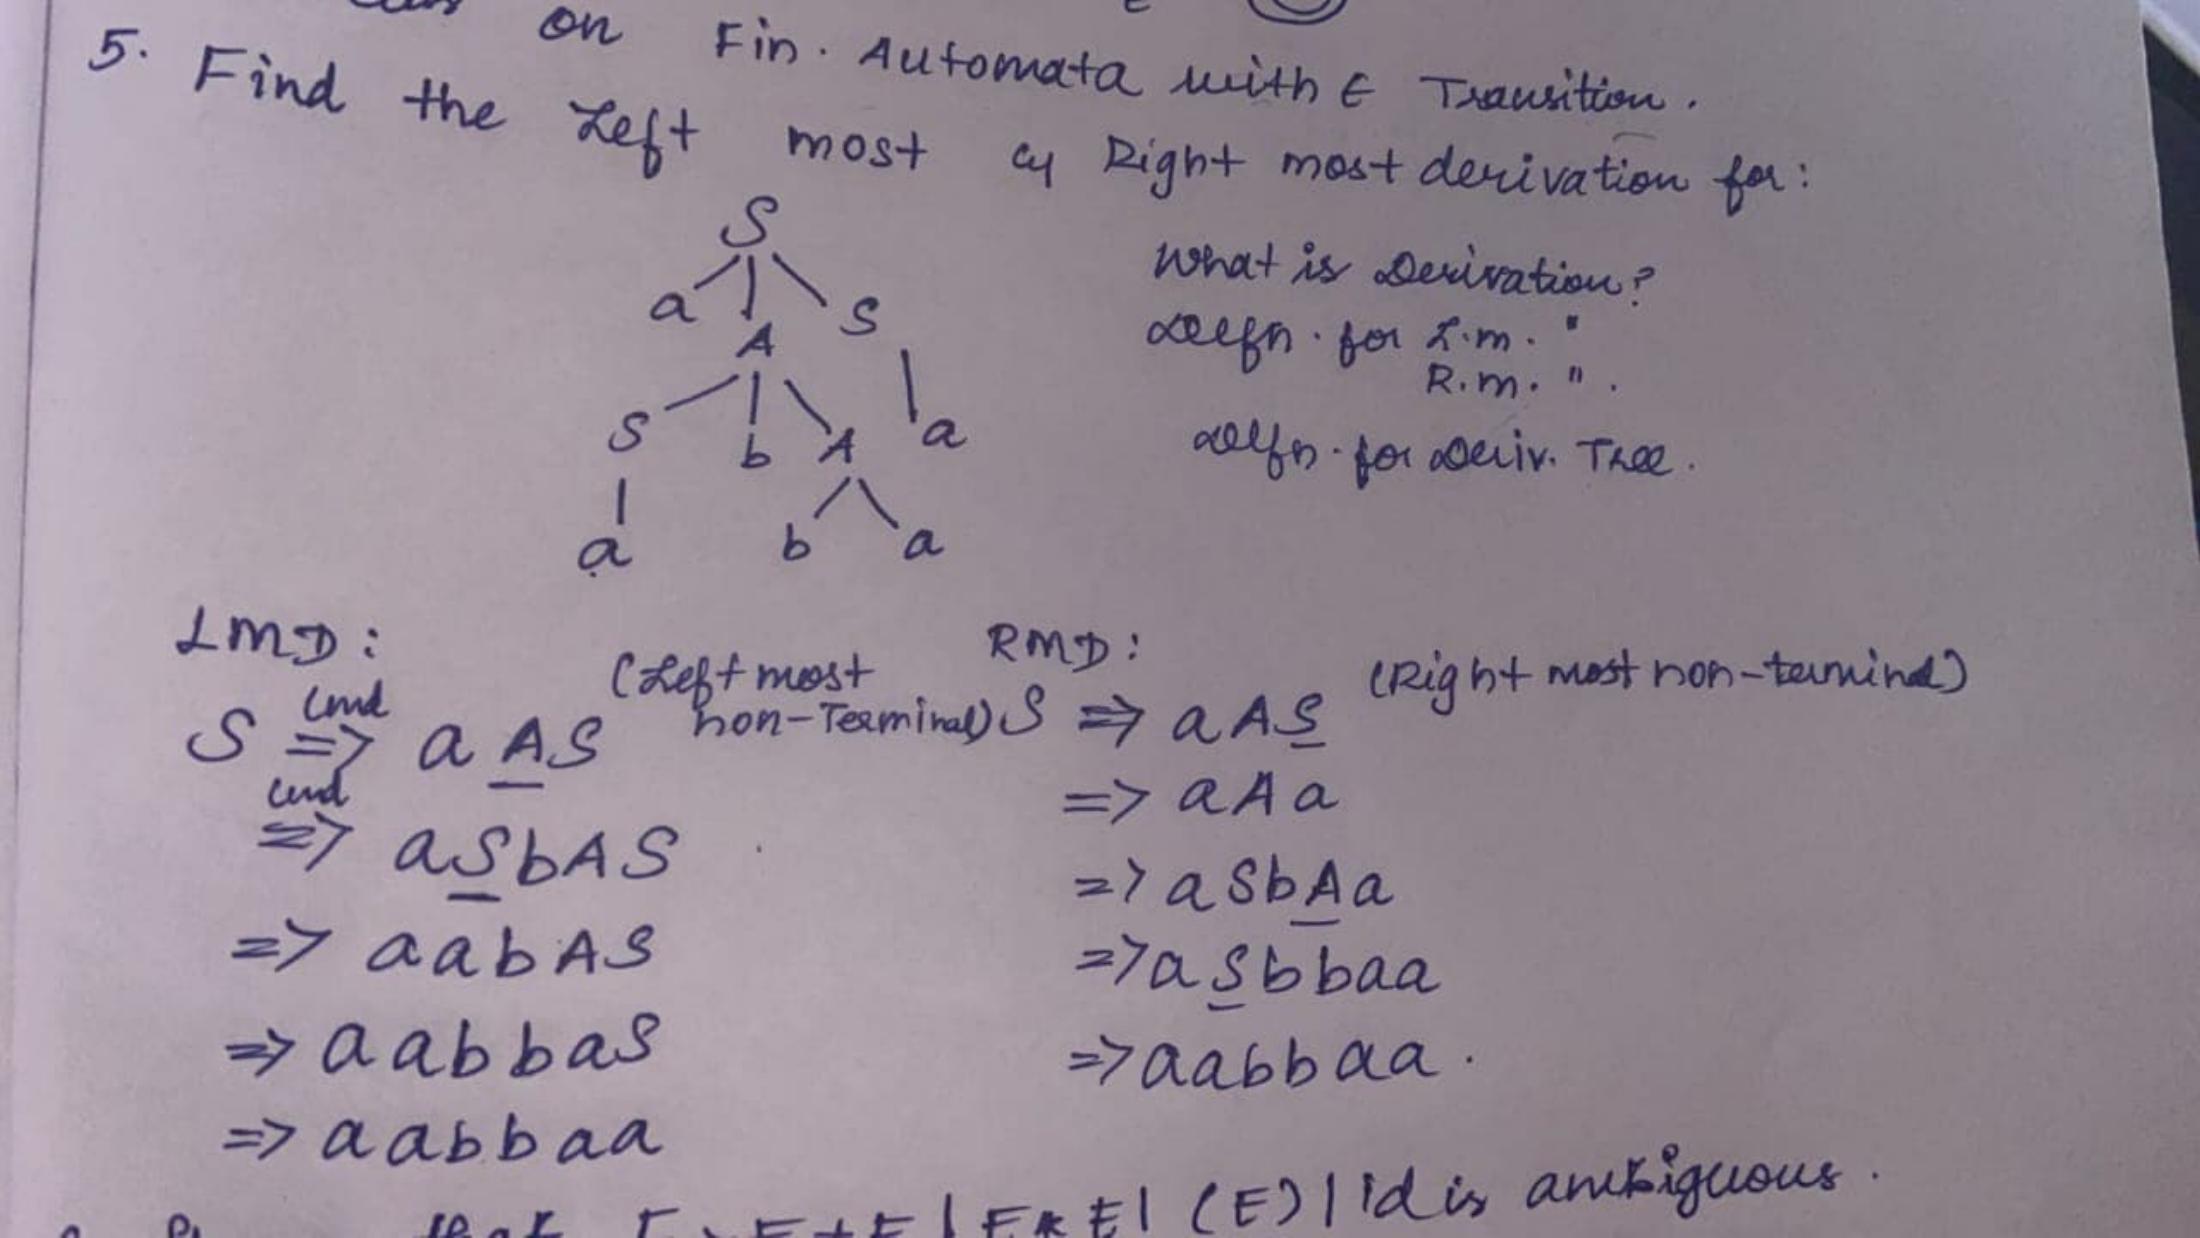 on Fin. Automata with ε Transition.
5. Find the Left most & Right most derivation for:
S
a A S
S b A a
a b a
What is Derivation?
Defn. for L.m. "
R.m. ".
Defn. for Deriv. Tree.
LMD:
(Left most non-Terminal)
S lmd => a A S
lmd => a S b A S
=> a a b A S
=> a a b b a S
=> a a b b a a
RMD:
(Right most non-terminal)
S => a A S
=> a A a
=> a S b A a
=> a S b b a a
=> a a b b a a.
that E -> E + E | E * E | (E) | id is ambiguous.